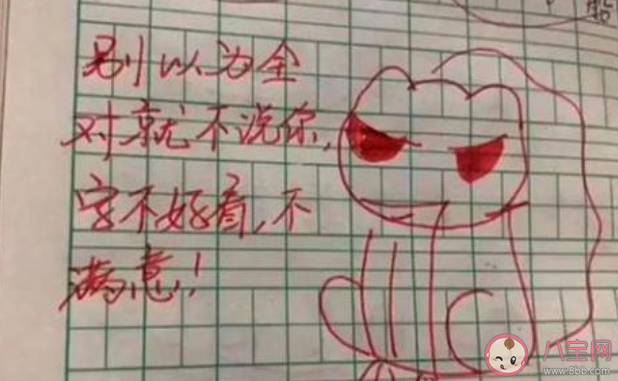 别以为全
对就不说你，
字不好看，不
满意！
八宝网
www.8bb.com